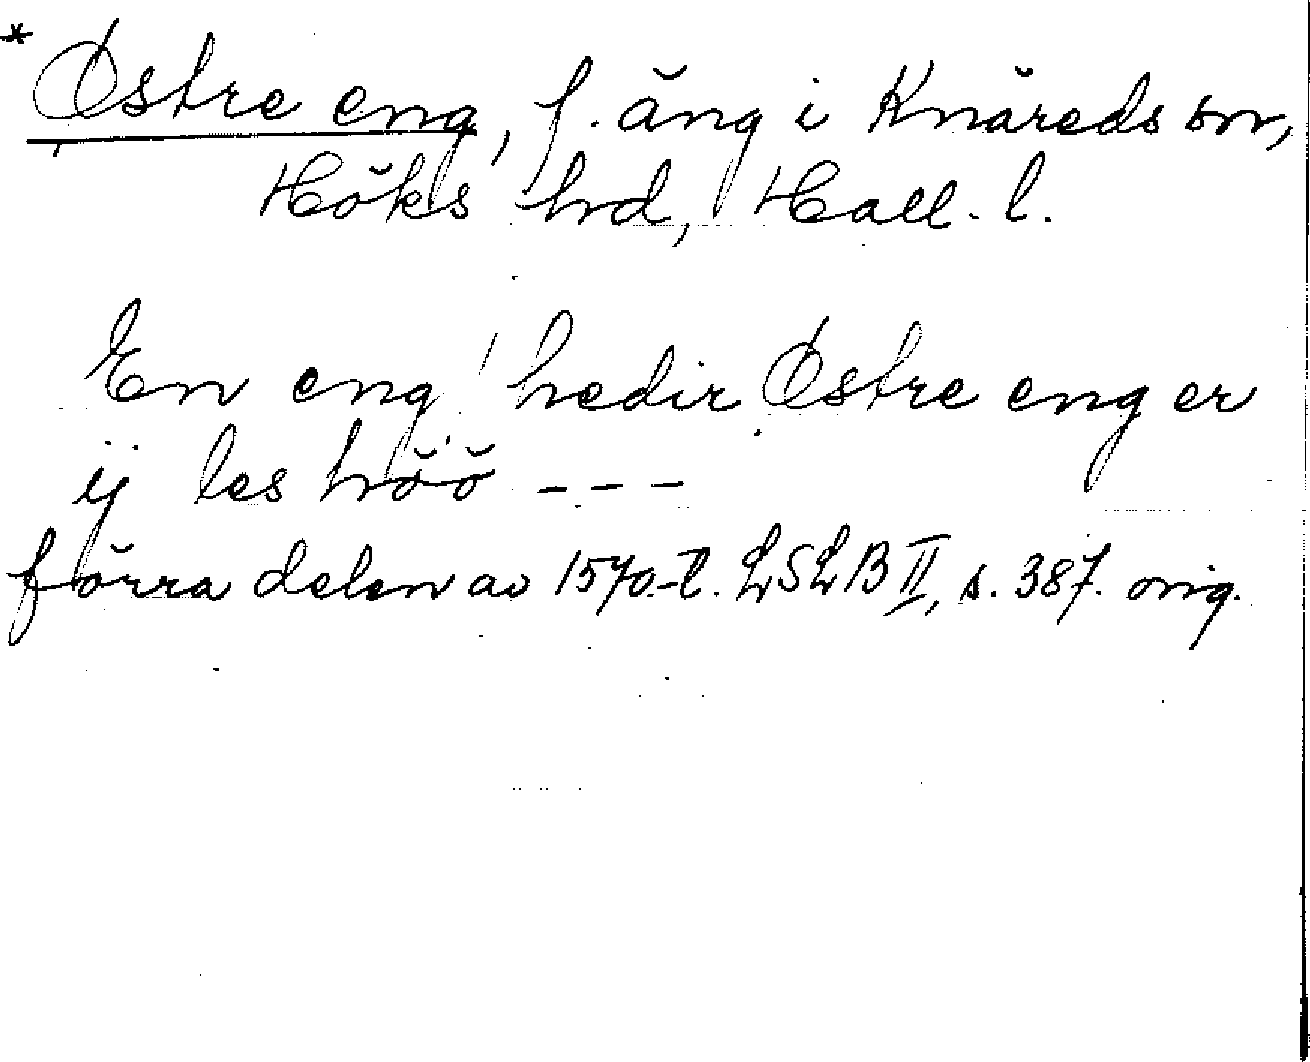 * Østre eng, f. äng i Knäreds sn,
Höks hrd, Hall. l.
En eng hedir Østre eng er
ij les höö ---
förra delen av 1570-t. LSLB II, s. 387. orig.